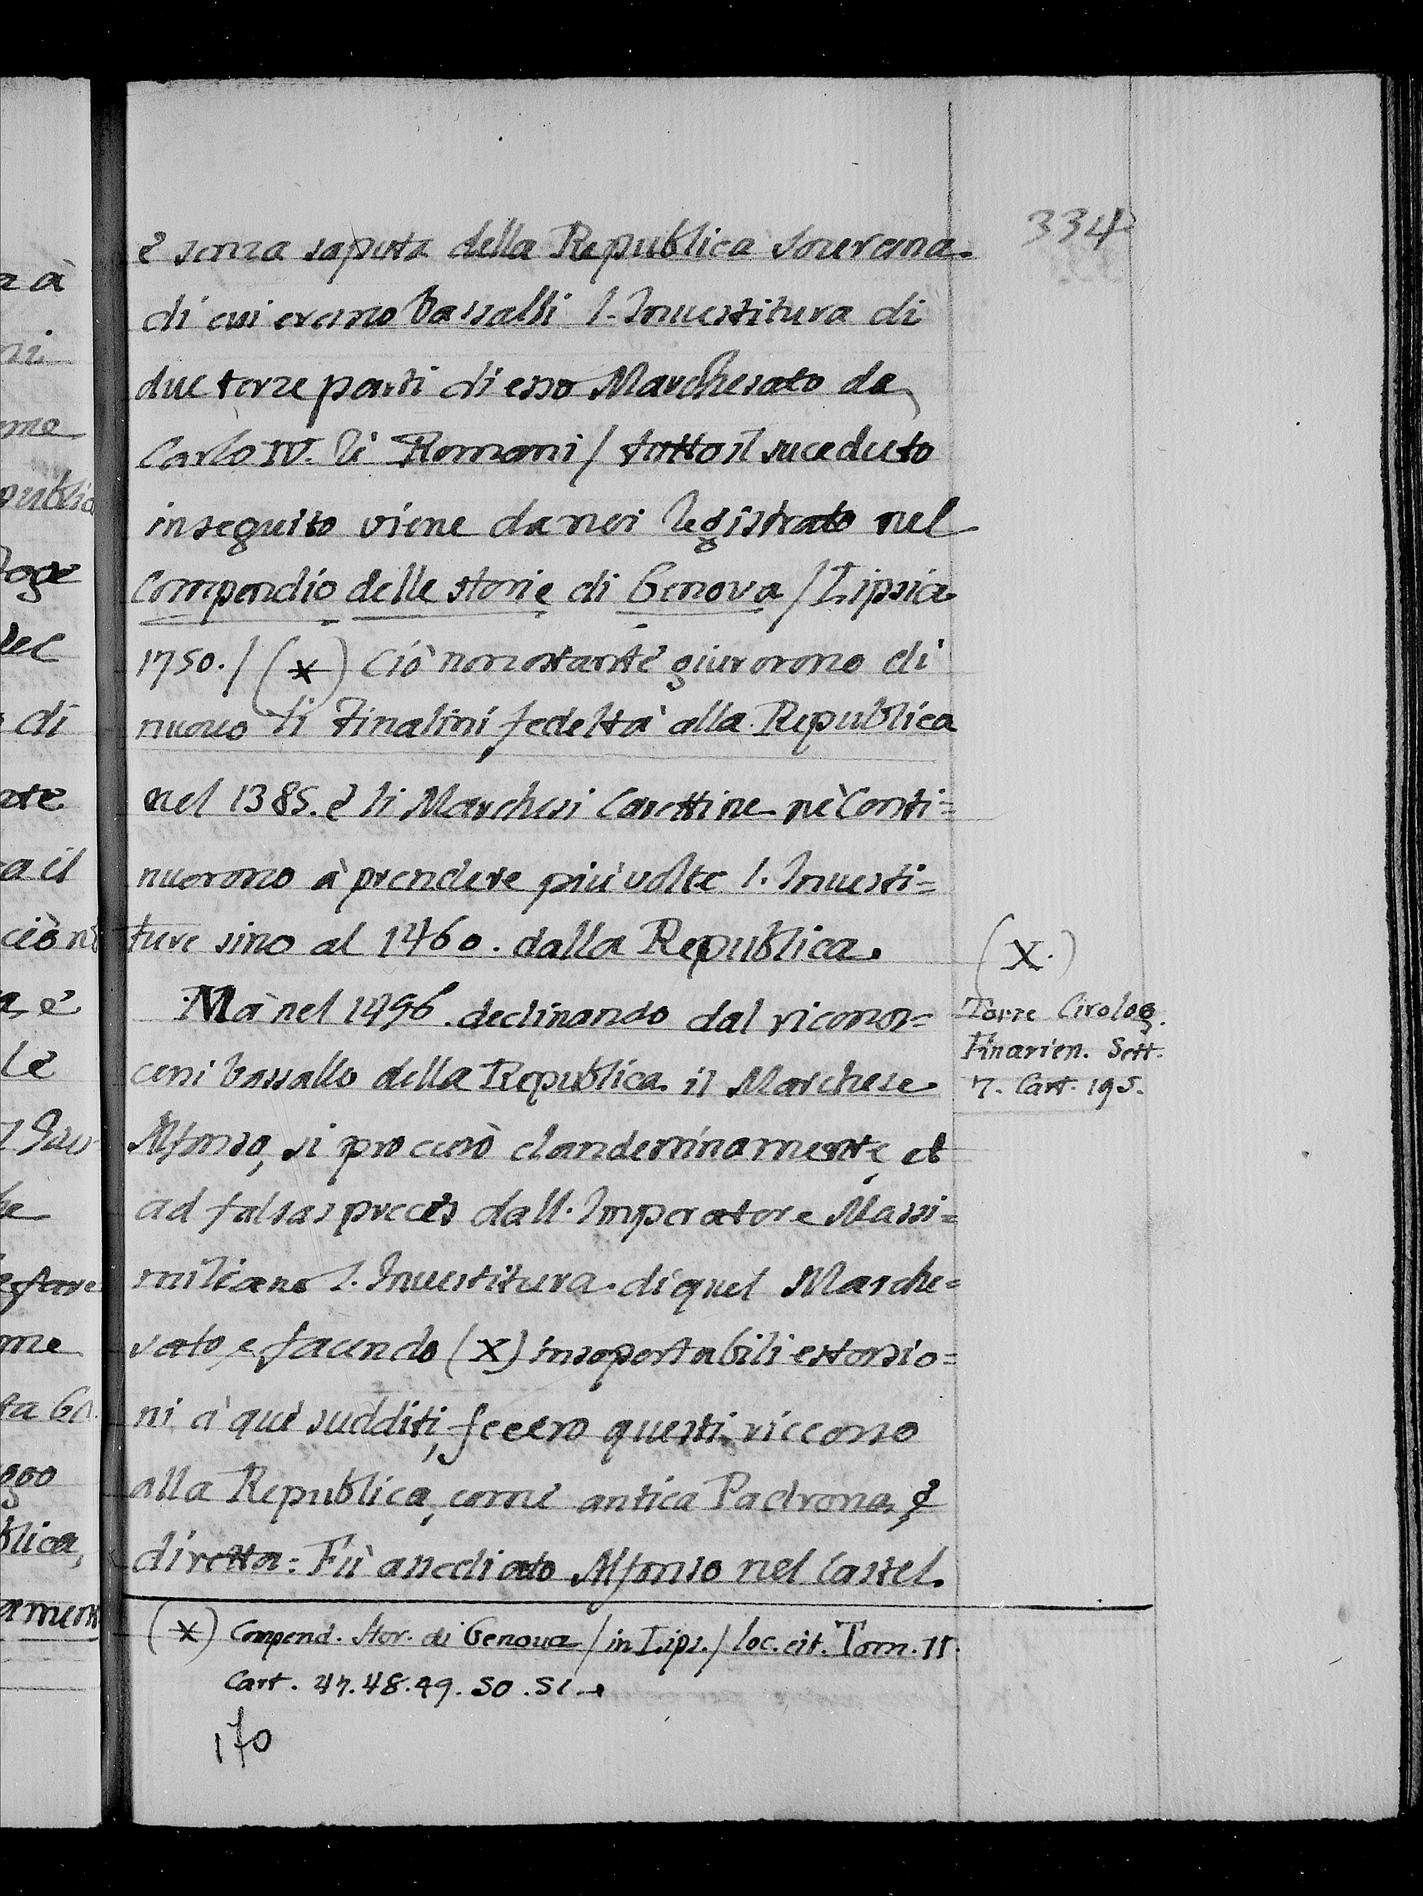 334
è senza saputa della Republica Sourana
di cui erano Vassalli l. Inuestitura di
due terze parti di esso Marchesato da
Carlo IV. Rè Romani / tutto il suceduto
in seguito viene da noi Registrato nel
Compendio delle storie di Genova / Lipsia
1750. / (X) Ciò nonostante giurorono di
nuouo li Finalini fedeltà alla Republica
nel 1385. è li Marchesi Carettine nè Conti=
nuorono à prendere più volte l. Inuesti=
ture sino al 1460. dalla Republica.
Mà nel 1496. declinando dal riconos=
cersi Vassallo della Republica il Marchese
Alfonso, si procurò clandestinamente, et
ad falsas preces dall. Imperatore Massi=
miliano l. Inuestitura di quel Marche=
sato, e facendo (X) insoportabili estorsio=
ni à què sudditi, fecero questi riccorso
alla Republica, come antica Padrona, è
diretta: Fù assediato Alfonso nel Castel.
(X) Compend. Stor. di Genoua / in Lips. / loc. cit. Tom. II.
Cart. 47. 48. 49. 50. 51.
170
(X.)
Torre Cirolog.
Finarien. Sett.
7. Cart. 195.